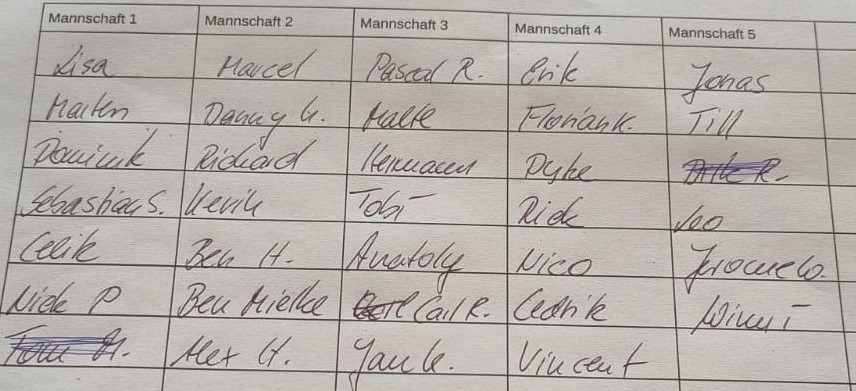 Mannschaft 1 Mannschaft 2 Mannschaft 3 Mannschaft 4 Mannschaft 5
Lisa Marcel Pascal R. Erik Jonas
Marten Danny G. Malte Florian K. Till
Dominik Richard Hermann Dyke
Sebastian S. Kevin Tobi Rick Leo
Celik Ben H. Anatoly Nico
Nick P Ben Mielke Carl R. Cedrik
Alex H. Jan G. Vincent